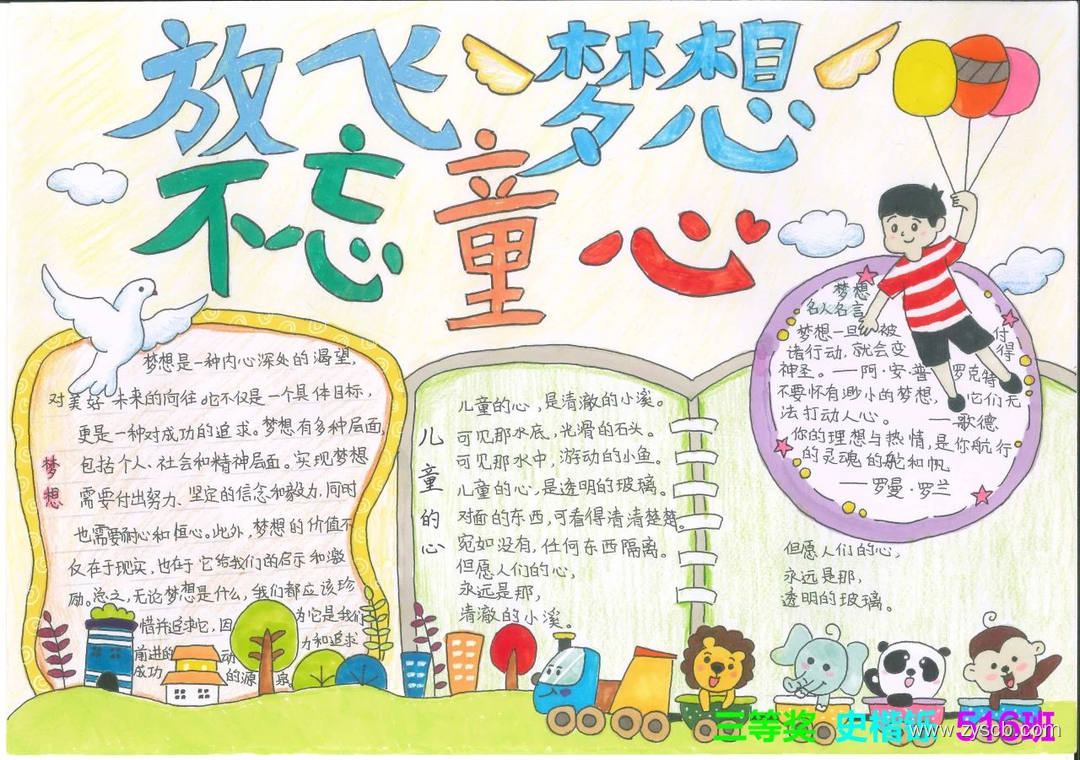 放飞梦想
不忘童心
梦想
梦想是一种内心深处的渴望，
对美好未来的向往。它不仅是一个具体目标，
更是一种对成功的追求。梦想有多种层面，
包括个人、社会和精神层面。实现梦想
需要付出努力、坚定的信念和毅力，同时
也需要耐心和恒心。此外，梦想的价值不
仅在于现实，也在于它给我们的启示和激
励。总之，无论梦想是什么，我们都应该珍
惜并追求它，因为它是我们
前进的动力和追求
成功的源泉。
儿童的心
儿童的心，是清澈的小溪。
可见那水底，光滑的石头。
可见那水中，游动的小鱼。
儿童的心，是透明的玻璃。
对面的东西，可看得清清楚楚。
宛如没有，任何东西隔离。
但愿人们的心，
永远是那，
清澈的小溪。
梦想
名人名言
梦想一旦被付
诸行动，就会变得
神圣。——阿·安·普罗克特
不要怀有渺小的梦想，它们无
法打动人心。——歌德
你的理想与热情，是你航行
的灵魂的舵和帆。
——罗曼·罗兰
但愿人们的心，
永远是那，
透明的玻璃。
三等奖 史楷 516班
www.zyscb.com